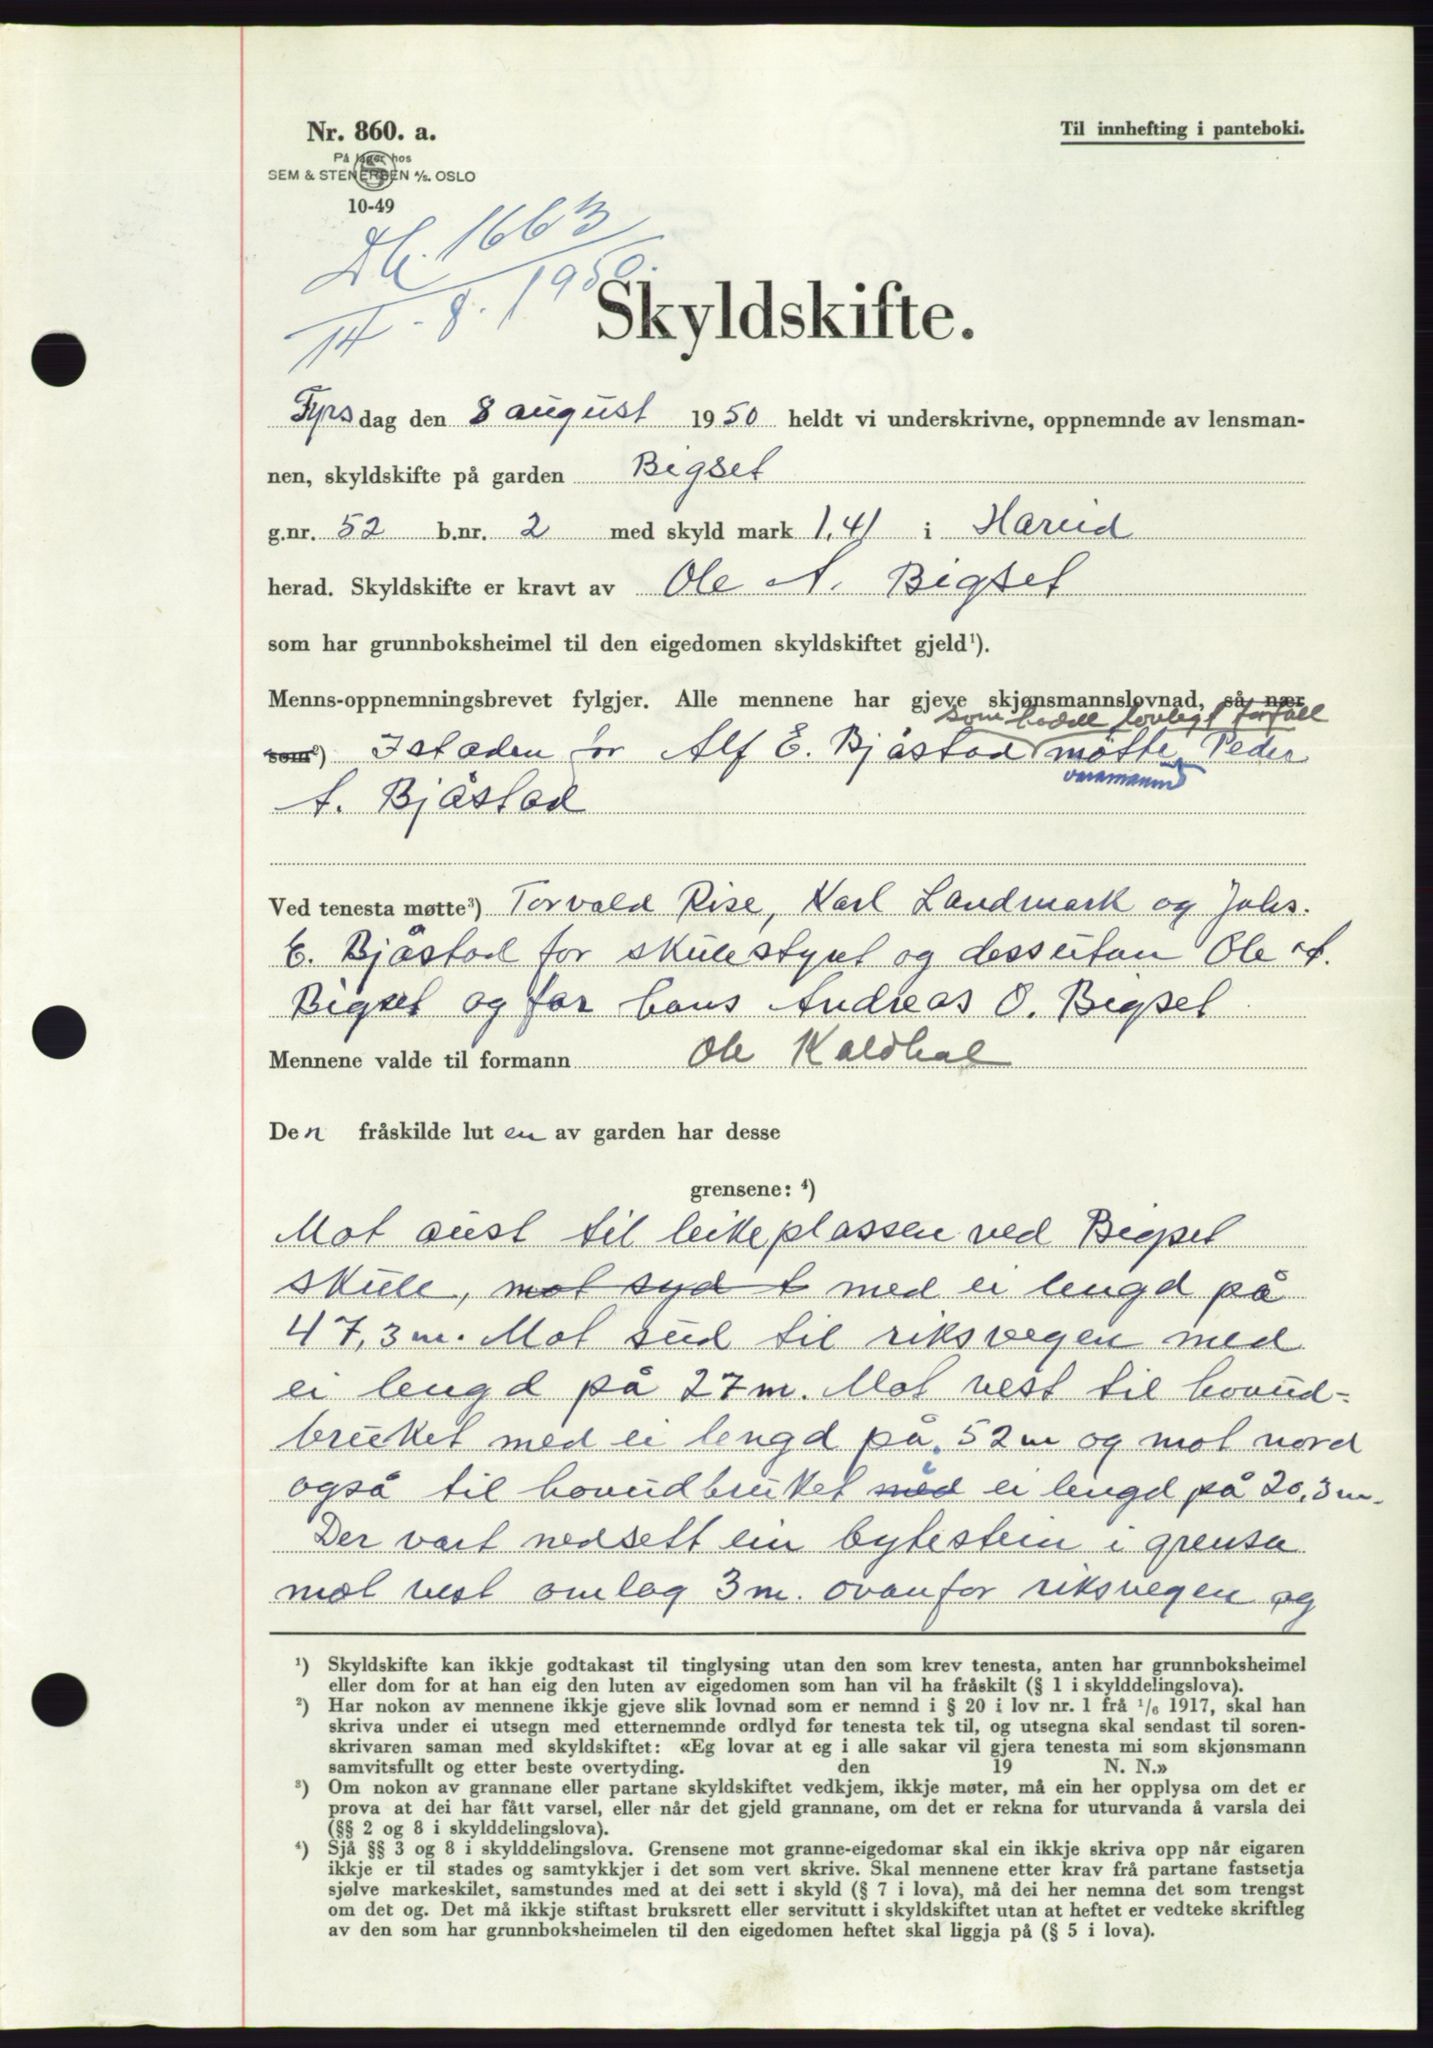 Nr. 860. a.
Til innhefting i panteboki.
På lager hos
SEM & STENERSEN A/S. OSLO
10-49
Db. 1663
14 - 8. 1950.
Skyldskifte.
Tyrsdag den 8 august 1950 heldt vi underskrivne, oppnemnde av lensman-
nen, skyldskifte på garden Bigset
g.nr. 52 b.nr. 2 med skyld mark 1,41 i Hareid
herad. Skyldskifte er kravt av Ole A. Bigset
som har grunnboksheimel til den eigedomen skyldskiftet gjeld¹).
Menns-oppnemningsbrevet fylgjer. Alle mennene har gjeve skjønsmannslovnad, så nær
som hadde lovlegt forfall
som²) Istaden for Alf E. Bjåstad møtte Peder
varamannen
A. Bjåstad
Ved tenesta møtte³) Torvald Rise, Karl Landmark og Johs.
E. Bjåstad for skulestyret og dessutan Ole A.
Bigset og far hans Andreas O. Bigset
Mennene valde til formann Ole Kaldhol
Den fråskilde luten av garden har desse
grensene: ⁴)
Mot aust til leikeplassen ved Bigset
skule, mot syd t med ei lengd på
47,3 m. Mot sud til riksvegen med
ei lengd på 27 m. Mot vest til hovud-
bruket med ei lengd på 52 m og mot nord
også til hovudbruket med i ei lengd på 20,3 m.
Der vart nedsett ein bytestein i grensa
mot vest omlag 3 m. ovanfor riksvegen og
¹) Skyldskifte kan ikkje godtakast til tinglysing utan den som krev tenesta, anten har grunnboksheimel
eller dom for at han eig den luten av eigedomen som han vil ha fråskilt (§ 1 i skylddelingslova).
²) Har nokon av mennene ikkje gjeve slik lovnad som er nemnd i § 20 i lov nr. 1 frå ¹/₆ 1917, skal han
skriva under ei utsegn med etternemnde ordlyd før tenesta tek til, og utsegna skal sendast til soren-
skrivaren saman med skyldskiftet: «Eg lovar at eg i alle sakar vil gjera tenesta mi som skjønsmann
samvitsfullt og etter beste overtyding. den 19 N. N.»
³) Om nokon av grannane eller partane skyldskiftet vedkjem, ikkje møter, må ein her opplysa om det er
prova at dei har fått varsel, eller når det gjeld grannane, om det er rekna for uturvanda å varsla dei
(§§ 2 og 8 i skylddelingslova).
⁴) Sjå §§ 3 og 8 i skylddelingslova. Grensene mot granne-eigedomar skal ein ikkje skriva opp når eigaren
ikkje er til stades og samtykkjer i det som vert skrive. Skal mennene etter krav frå partane fastsetja
sjølve markeskilet, samstundes med at dei sett i skyld (§ 7 i lova), må dei her nemna det som trengst
om det og. Det må ikkje stiftast bruksrett eller servitutt i skyldskiftet utan at heftet er vedteke skriftleg
av den som har grunnboksheimelen til den eigedomen heftet skal liggja på (§ 5 i lova).